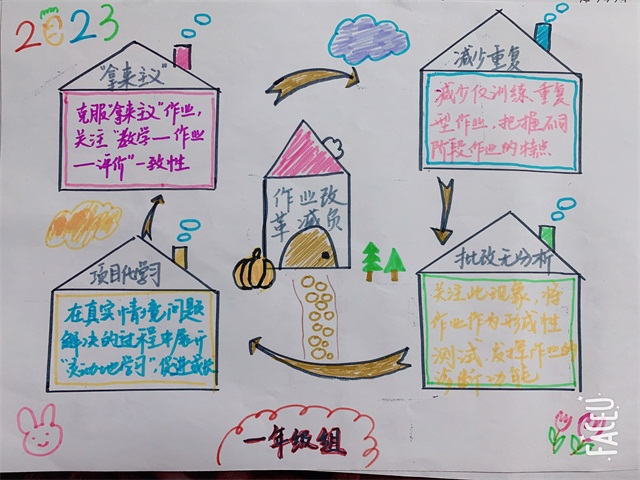 2023
"拿来主义"
克服"拿来主义"作业,
关注"教学—作业
—评价"一致性
减少重复
减少仅训练重复
型作业,把握不同
阶段作业的特点
作业改
革减负
项目化学习
在真实情境问题
解决的过程中展开
"主动地学习",促进成长
批改无分析
关注此现象,将
作业作为形成性
测试,发挥作业的
诊断功能
一年级组
FACEU